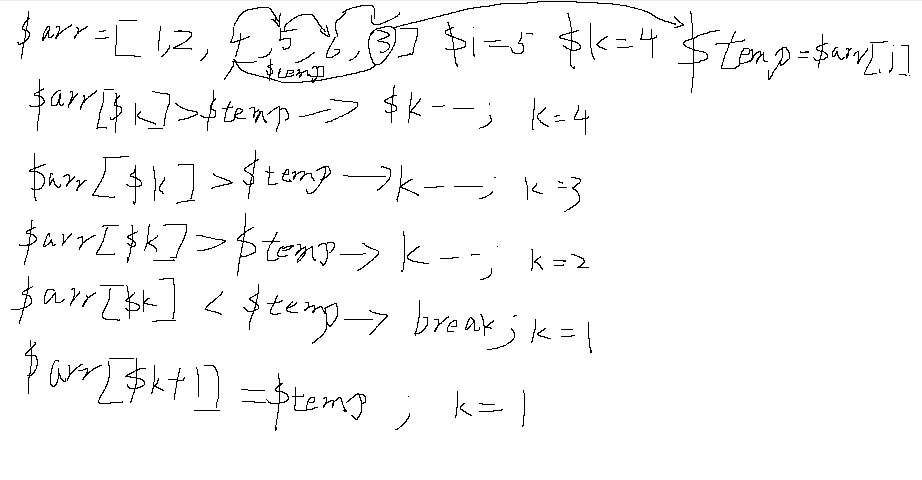 $arr=[1,2,4,5,6,3] $i=5 $k=4 $temp=$arr[i]
$temp
$arr[$k]>$temp→ $k--; k=4
$arr[$k]>$temp→k--; k=3
$arr[$k]>$temp→k--; k=2
$arr[$k] < $temp→ break; k=1
$arr[$k+1] =$temp ; k=1